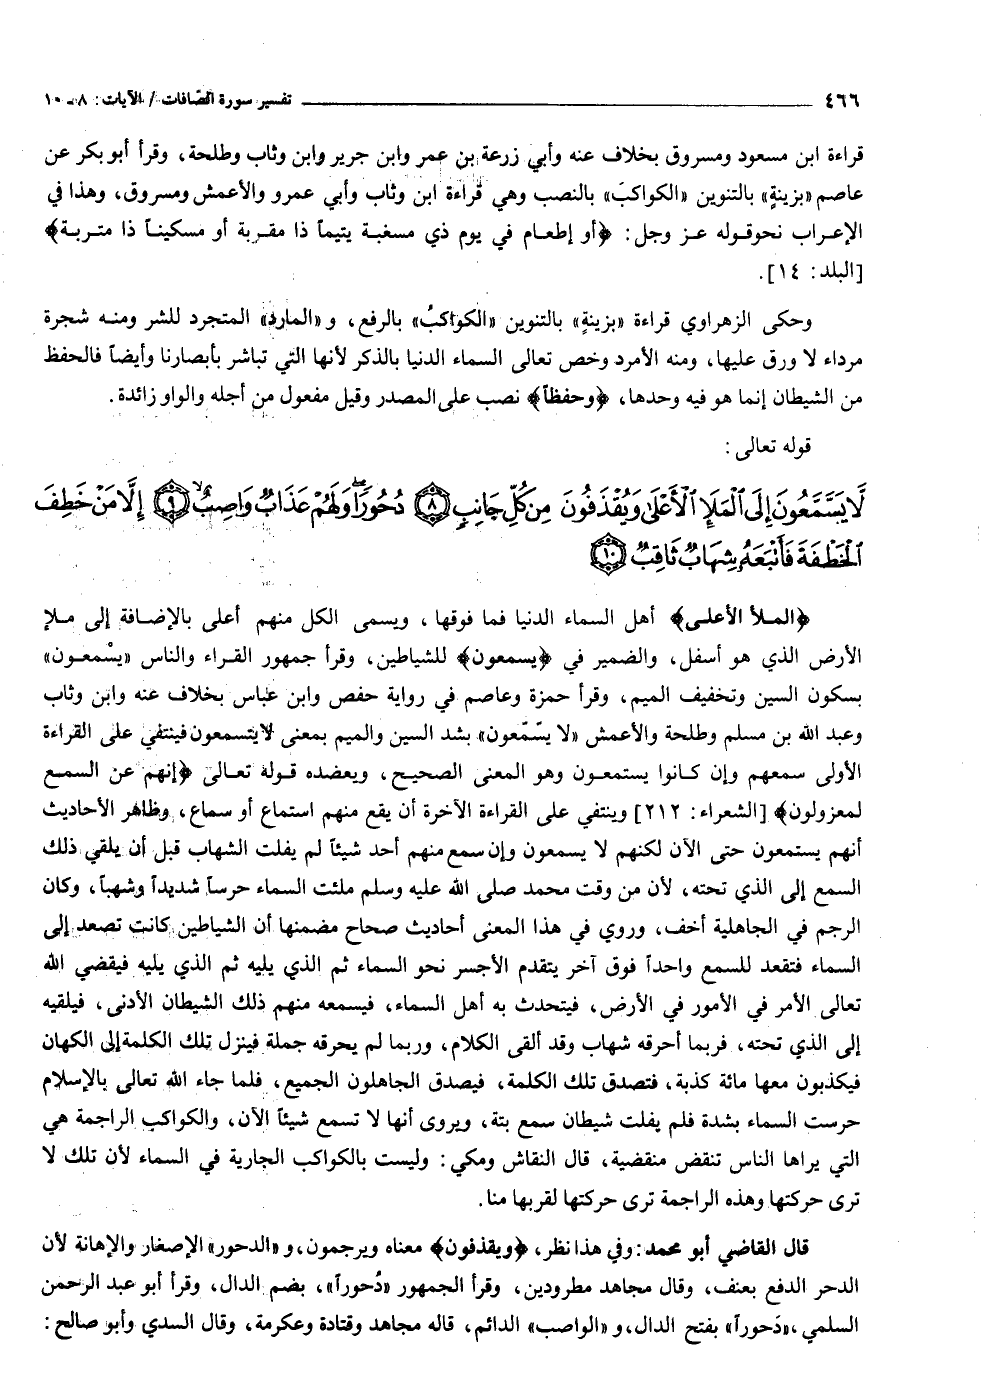 ٤٦٦ ـــــ تفسير سورة الصّافات / الآيات: ٨ـ ١٠
قراءة ابن مسعود ومسروق بخلاف عنه وأبي زرعة بن عمر وابن جرير وابن وثاب وطلحة، وقرأ أبو بكر عن
عاصم «بزينةٍ» بالتنوين «الكواكبَ» بالنصب وهي قراءة ابن وثاب وأبي عمرو والأعمش ومسروق، وهذا في
الإعراب نحو قوله عز وجل: ﴿أو إطعام في يوم ذي مسغبة يتيماً ذا مقربة أو مسكيناً ذا متربة﴾
[البلد: ١٤].
وحكى الزهراوي قراءة «بزينةٍ» بالتنوين «الكواكبُ» بالرفع، و «المارد» المتجرد للشر ومنه شجرة
مرداء لا ورق عليها، ومنه الأمرد وخص تعالى السماء الدنيا بالذكر لأنها التي تباشر بأبصارنا وأيضاً فالحفظ
من الشيطان إنما هو فيه وحدها، ﴿وحفظاً﴾ نصب على المصدر وقيل مفعول من أجله والواو زائدة.
قوله تعالى:
لَّا يَسَّمَّعُونَ إِلَى ٱلْمَلَإِ ٱلْأَعْلَىٰ وَيُقْذَفُونَ مِن كُلِّ جَانِبٍ ۝٨ دُحُورًا ۖ وَلَهُمْ عَذَابٌ وَاصِبٌ ۙ ۝٩ إِلَّا مَنْ خَطِفَ
ٱلْخَطْفَةَ فَأَتْبَعَهُۥ شِهَابٌ ثَاقِبٌ ۝١٠
﴿الملأ الأعلى﴾ أهل السماء الدنيا فما فوقها، ويسمى الكل منهم أعلى بالإضافة إلى ملإ
الأرض الذي هو أسفل، والضمير في ﴿يسمعون﴾ للشياطين، وقرأ جمهور القراء والناس «يسْمعون»
بسكون السين وتخفيف الميم، وقرأ حمزة وعاصم في رواية حفص وابن عباس بخلاف عنه وابن وثاب
وعبد الله بن مسلم وطلحة والأعمش «لا يسّمّعون» بشد السين والميم بمعنى لا يتسمعون فينتفي على القراءة
الأولى سمعهم وإن كانوا يستمعون وهو المعنى الصحيح، ويعضده قوله تعالى ﴿إنهم عن السمع
لمعزولون﴾ [الشعراء: ٢١٢] وينتفي على القراءة الآخرة أن يقع منهم استماع أو سماع، وظاهر الأحاديث
أنهم يستمعون حتى الآن لكنهم لا يسمعون وإن سمع منهم أحد شيئاً لم يفلت الشهاب قبل أن يلقي ذلك
السمع إلى الذي تحته، لأن من وقت محمد صلى الله عليه وسلم ملئت السماء حرساً شديداً وشهباً، وكان
الرجم في الجاهلية أخف، وروي في هذا المعنى أحاديث صحاح مضمنها أن الشياطين كانت تصعد إلى
السماء فتقعد للسمع واحداً فوق آخر يتقدم الأجسر نحو السماء ثم الذي يليه ثم الذي يليه فيقضي الله
تعالى الأمر في الأمور في الأرض، فيتحدث به أهل السماء، فيسمعه منهم ذلك الشيطان الأدنى، فيلقيه
إلى الذي تحته، فربما أحرقه شهاب وقد ألقى الكلام، وربما لم يحرقه جملة فينزل تلك الكلمة إلى الكهان
فيكذبون معها مائة كذبة، فتصدق تلك الكلمة، فيصدق الجاهلون الجميع، فلما جاء الله تعالى بالإسلام
حرست السماء بشدة فلم يفلت شيطان سمع بتة، ويروى أنها لا تسمع شيئاً الآن، والكواكب الراجمة هي
التي يراها الناس تنقض منقضية، قال النقاش ومكي: وليست بالكواكب الجارية في السماء لأن تلك لا
ترى حركتها وهذه الراجمة ترى حركتها لقربها منا.
قال القاضي أبو محمد: وفي هذا نظر، ﴿ويقذفون﴾ معناه ويرجمون، و «الدحور» الإصغار والإهانة لأن
الدحر الدفع بعنف، وقال مجاهد مطرودين، وقرأ الجمهور «دُحوراً»، بضم الدال، وقرأ أبو عبد الرحمن
السلمي، «دَحوراً» بفتح الدال، و «الواصب» الدائم، قاله مجاهد وقتادة وعكرمة، وقال السدي وأبو صالح: